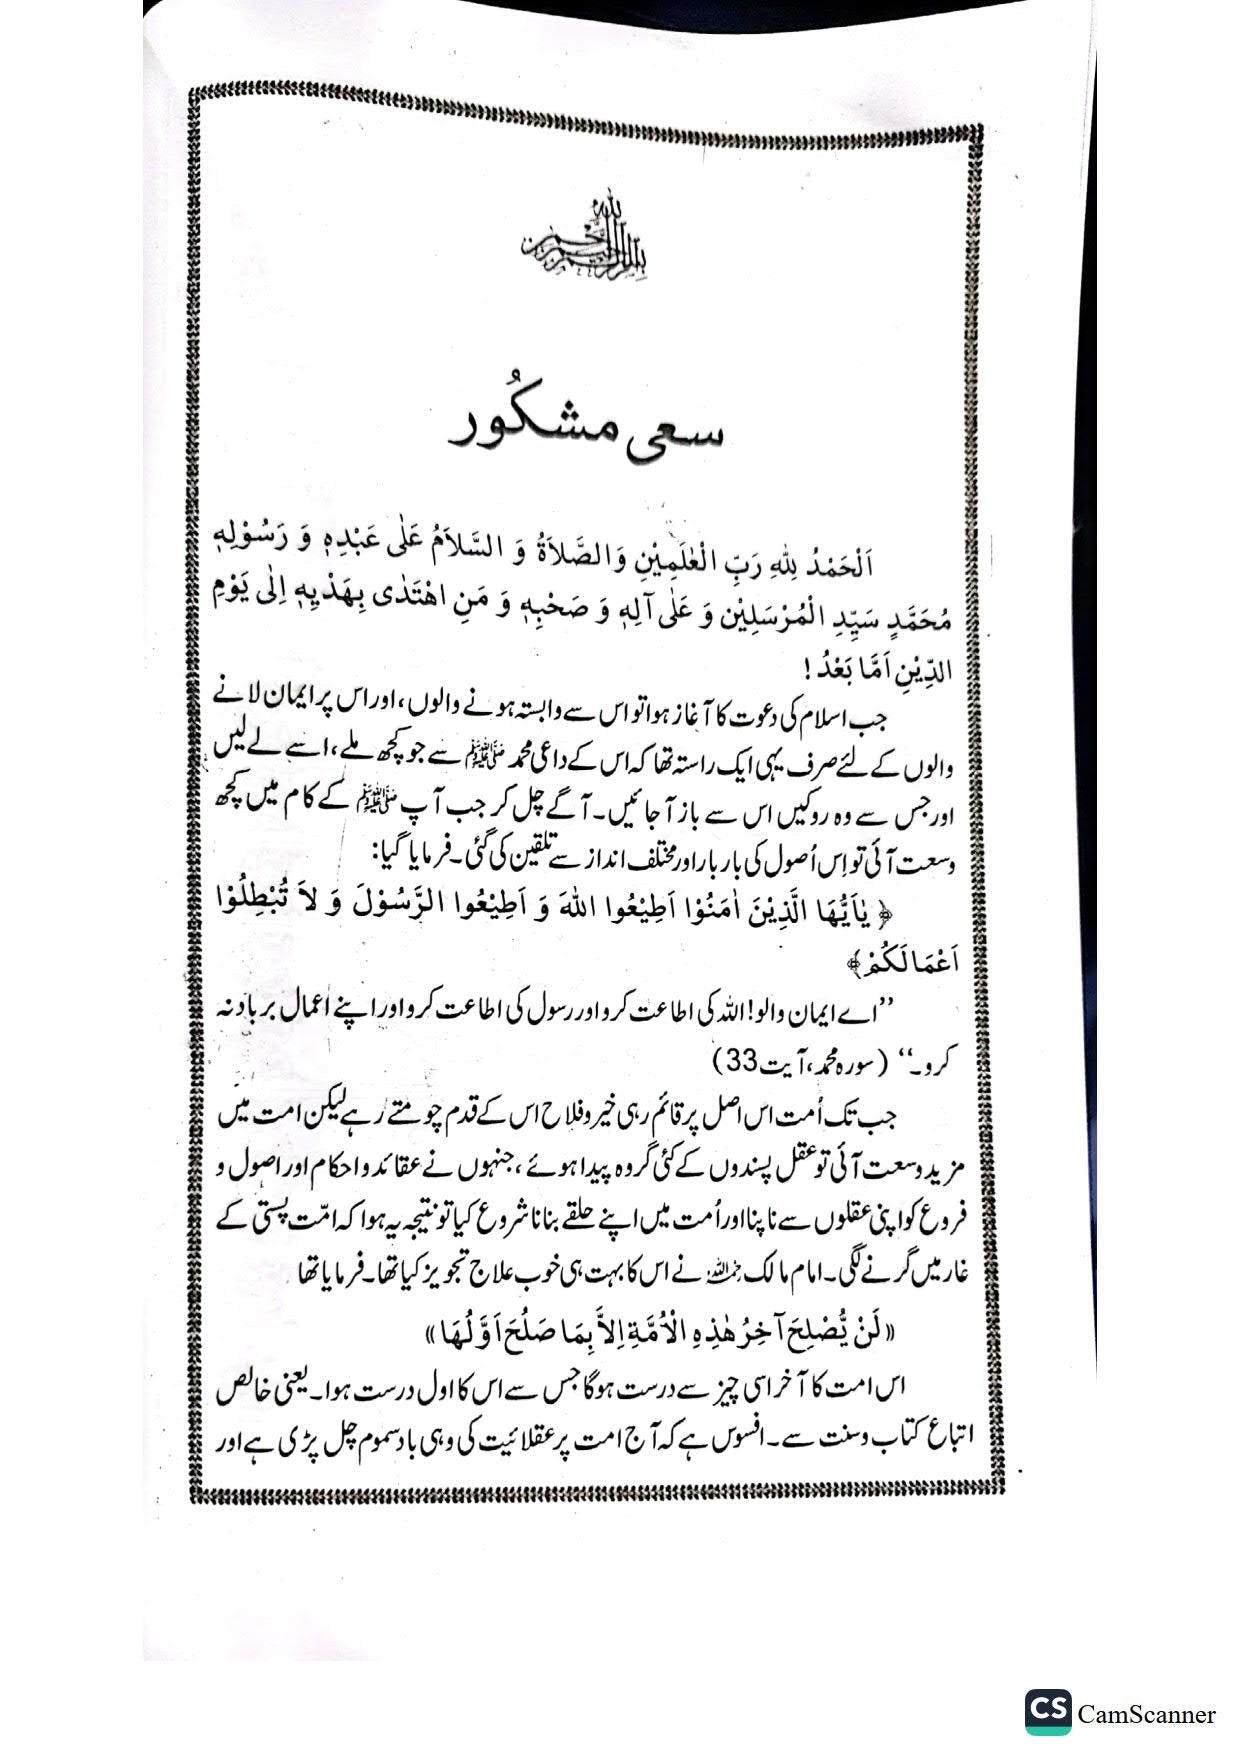 بسم الله الرحمن الرحيم
سعی مشکُور
اَلْحَمْدُ لِلّٰهِ رَبِّ الْعٰلَمِيْنَ وَالصَّلاَةُ وَ السَّلاَمُ عَلٰى عَبْدِهٖ وَ رَسُوْلِهٖ
مُحَمَّدٍ سَيِّدِ الْمُرْسَلِيْنَ وَ عَلٰى آلِهٖ وَ صَحْبِهٖ وَ مَنِ اهْتَدٰى بِهَدْيِهٖ اِلٰى يَوْمِ
الدِّيْنِ اَمَّا بَعْدُ !
جب اسلام کی دعوت کا آغاز ہوا تو اس سے وابستہ ہونے والوں، اور اس پر ایمان لانے
والوں کے لئے صرف یہی ایک راستہ تھا کہ اس کے داعی محمد ﷺ سے جو کچھ ملے، اسے لے لیں
اور جس سے وہ روکیں اس سے باز آ جائیں۔ آگے چل کر جب آپ ﷺ کے کام میں کچھ
وسعت آئی تو اِس اُصول کی بار بار اور مختلف انداز سے تلقین کی گئی۔ فرمایا گیا:
﴿ يٰاَيُّهَا الَّذِيْنَ اٰمَنُوْا اَطِيْعُوا اللّٰهَ وَ اَطِيْعُوا الرَّسُوْلَ وَ لاَ تُبْطِلُوْا
اَعْمَالَكُمْ﴾
’’اے ایمان والو! اللہ کی اطاعت کرو اور رسول کی اطاعت کرو اور اپنے اعمال برباد نہ
کرو۔‘‘ (سورہ محمد، آیت 33)
جب تک اُمت اس اصل پر قائم رہی خیر و فلاح اس کے قدم چومتے رہے لیکن امت میں
مزید وسعت آئی تو عقل پسندوں کے کئی گروہ پیدا ہوئے، جنہوں نے عقائد و احکام اور اصول و
فروع کو اپنی عقلوں سے ناپنا اور اُمت میں اپنے حلقے بنانا شروع کیا تو نتیجہ یہ ہوا کہ امّت پستی کے
غار میں گرنے لگی۔ امام مالک رحمہ اللہ نے اس کا بہت ہی خوب علاج تجویز کیا تھا۔ فرمایا تھا
«لَنْ يُّصْلِحَ آخِرُ هٰذِهِ الْاُمَّةِ اِلاَّ بِمَا صَلُحَ اَوَّلُهَا»
اس امت کا آخر اسی چیز سے درست ہوگا جس سے اس کا اول درست ہوا۔ یعنی خالص
اتباع کتاب و سنت سے۔ افسوس ہے کہ آج امت پر عقلائیت کی وہی باد سموم چل پڑی ہے اور
CS CamScanner